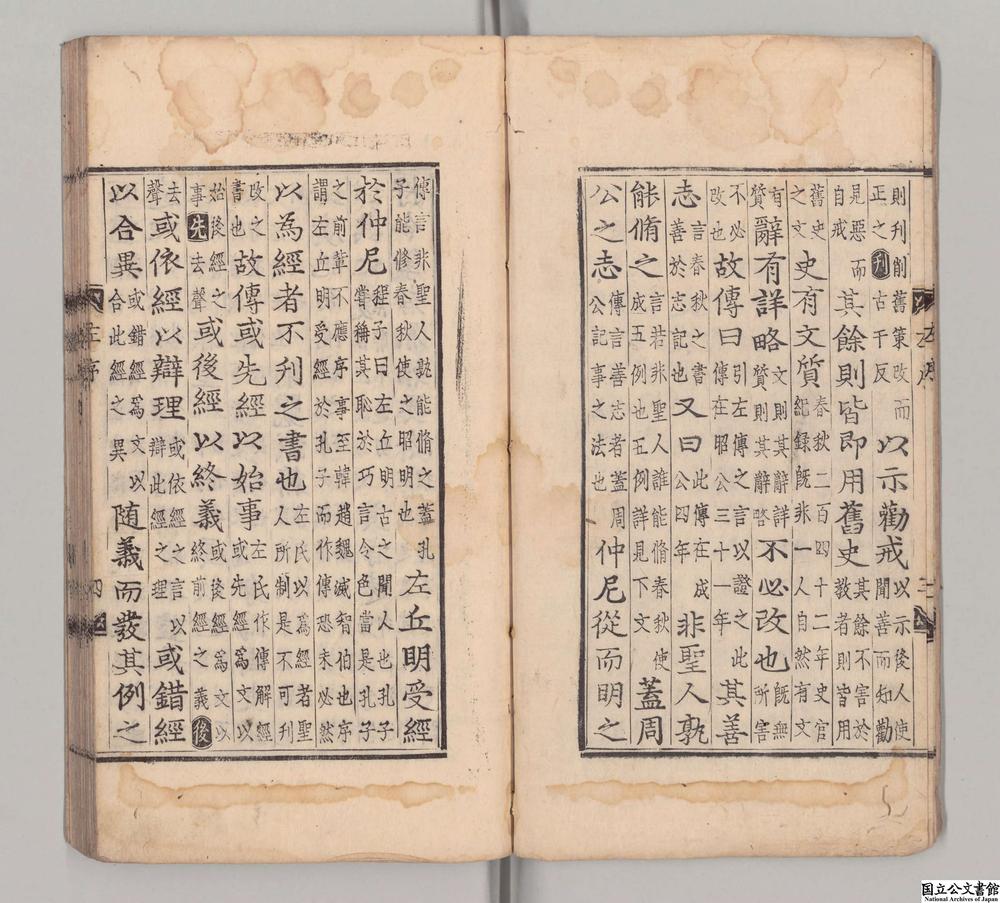 則刊削舊策改而正之刊古干反以示勸戒以示後人使聞善而知勸
見惡而自戒其餘則皆即用舊史其餘不害於教者則皆用
舊史之文史有文質春秋二百四十二年史官紀録旣非一人自然有文
有質辭有詳略文則其辭詳質則其辭略不必改也旣無所害
不必改也故傳曰引左傳之言以證之此傳在昭公三十一年其善
志言春秋之書善於志記也又曰此傳在成公四年非聖人孰
能脩之言若非聖人誰能脩春秋使成五例也五例詳見下文蓋周
公之志傳言善志者蓋周公記事之法也仲尼從而明之
傳言非聖人孰能脩之蓋孔子能修春秋使之昭明也左丘明受經
於仲尼程子曰左丘明古之聞人也孔子嘗稱其恥於巧言令色當是孔子
之前輩不應序事至韓趙魏滅智伯也序謂左丘明受經於孔子而作傳恐未必然
以為經者不刊之書也左氏以爲經者聖人所制是不可刊
改之書也故傳或先經以始事左氏作傳解經或先經爲文以
始後經之事先去聲或後經以終義或後經爲文以終前經之義後
去聲或依經以辯理或依經之言以辯此經之理或錯經
以合異或錯經爲文以合此經之異隨義而發其例之
序
四
国立公文書館
National Archives of Japan